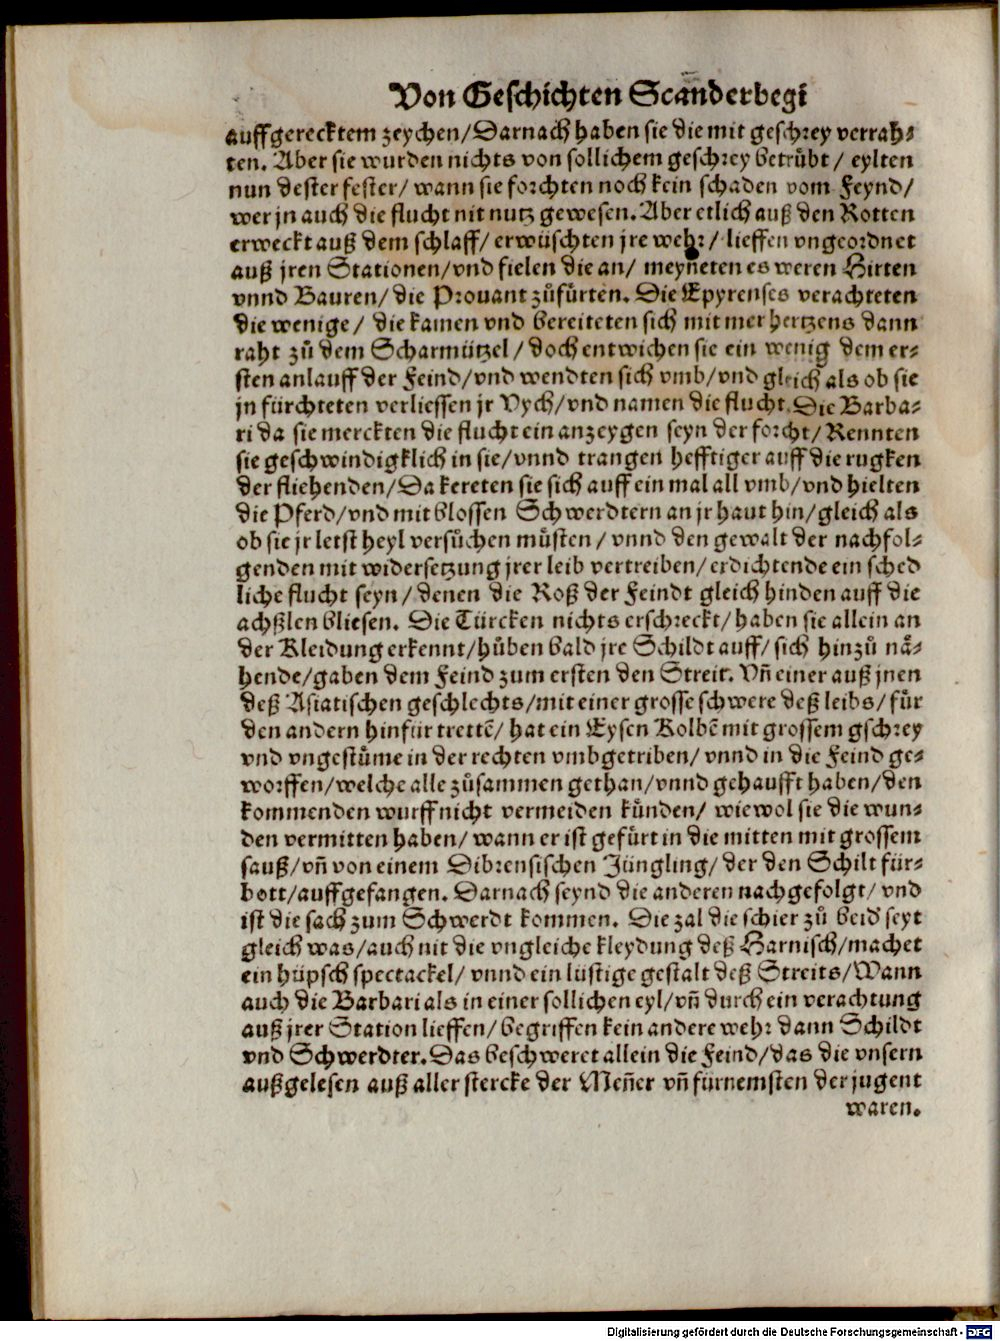 Von Geschichten Scanderbegi
auffgerecktem zeychen/Darnach haben sie die mit geschrey verrah⸗
ten. Aber sie wurden nichts von sollichem geschrey betrübt/ eylten
nun dester fester/ wann sie forchten noch kein schaden vom Feynd/
wer jn auch die flucht nit nutz gewesen. Aber etlich auß den Rotten
erweckt auß dem schlaff/ erwüschten jre wehr/ lieffen vngeordnet
auß jren Stationen/vnd fielen die an/ meyneten es weren Hirten
vnnd Bauren/ die Prouant zůfürten. Die Epyrenses verachteten
die wenige/ die kamen vnd bereiteten sich mit mer hertzens dann
raht zů dem Scharmützel/ doch entwichen sie ein wenig dem er⸗
sten anlauff der Feind/vnd wendten sich vmb/vnd gleich als ob sie
jn fürchteten verliessen jr Vych/vnd namen die flucht. Die Barba⸗
ri da sie merckten die flucht ein anzeygen seyn der forcht/ Rennten
sie geschwindigklich in sie/vnnd trangen hefftiger auff die rugken
der fliehenden/Da kereten sie sich auff ein mal all vmb/vnd hielten
die Pferd/vnd mit blossen Schwerdtern an jr haut hin/gleich als
ob sie jr letst heyl versůchen můsten/ vnnd den gewalt der nachfol⸗
genden mit widersetzung jrer leib vertreiben/ erdichtende ein sched
liche flucht seyn/ denen die Roß der Feindt gleich hinden auff die
achßlen bliesen. Die Türcken nichts erschreckt/ haben sie allein an
der Kleidung erkennt/hůben bald jre Schildt auff/ sich hinzů nå⸗
hende/gaben dem Feind zum ersten den Streit. Vñ einer auß jnen
deß Asiatischen geschlechts/mit einer grosse schwere deß leibs/ für
den andern hinfür trettē/ hat ein Eysen Kolbē mit grossem gschrey
vnd vngestüme in der rechten vmbgetriben/ vnnd in die Feind ge⸗
worffen/welche alle zůsammen gethan/vnnd gehaufft haben/den
kommenden wurff nicht vermeiden künden/ wiewol sie die wun⸗
den vermitten haben/ wann er ist gefürt in die mitten mit grossem
sauß/vñ von einem Dibrensischen Jüngling/ der den Schilt für⸗
bott/auffgefangen. Darnach seynd die anderen nachgefolgt/ vnd
ist die sach zum Schwerdt kommen. Die zal die schier zů beid' seyt
gleich was/auch nit die vngleiche kleydung deß Harnisch/machet
ein hüpsch spectackel/ vnnd ein lüstige gestalt deß Streits/Wann
auch die Barbari als in einer sollichen eyl/vñ durch ein verachtung
auß jrer Station lieffen/ begriffen kein andere wehr dann Schildt
vnd Schwerdter. Das beschweret allein die Feind/das die vnsern
außgelesen auß aller stercke der Meñer vñ fürnemsten der jugent
waren.
Digitalisierung gefördert durch die Deutsche Forschungsgemeinschaft - DFG